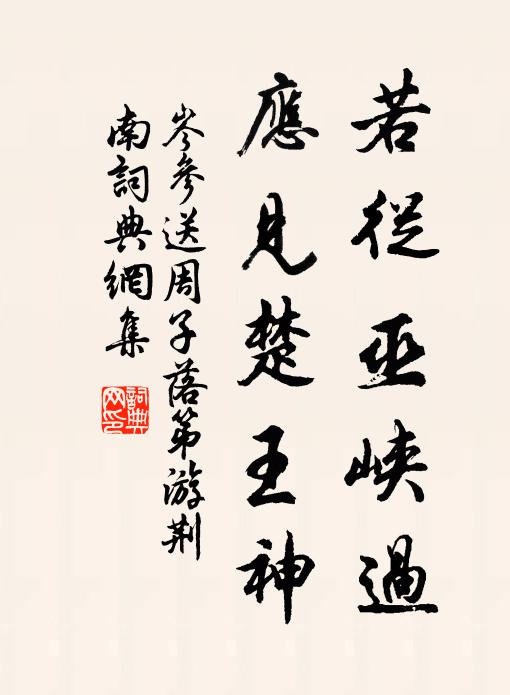 若從巫峽過
應見楚王神
岑參送周子落第游荆
南詞典網集
詞典
网印